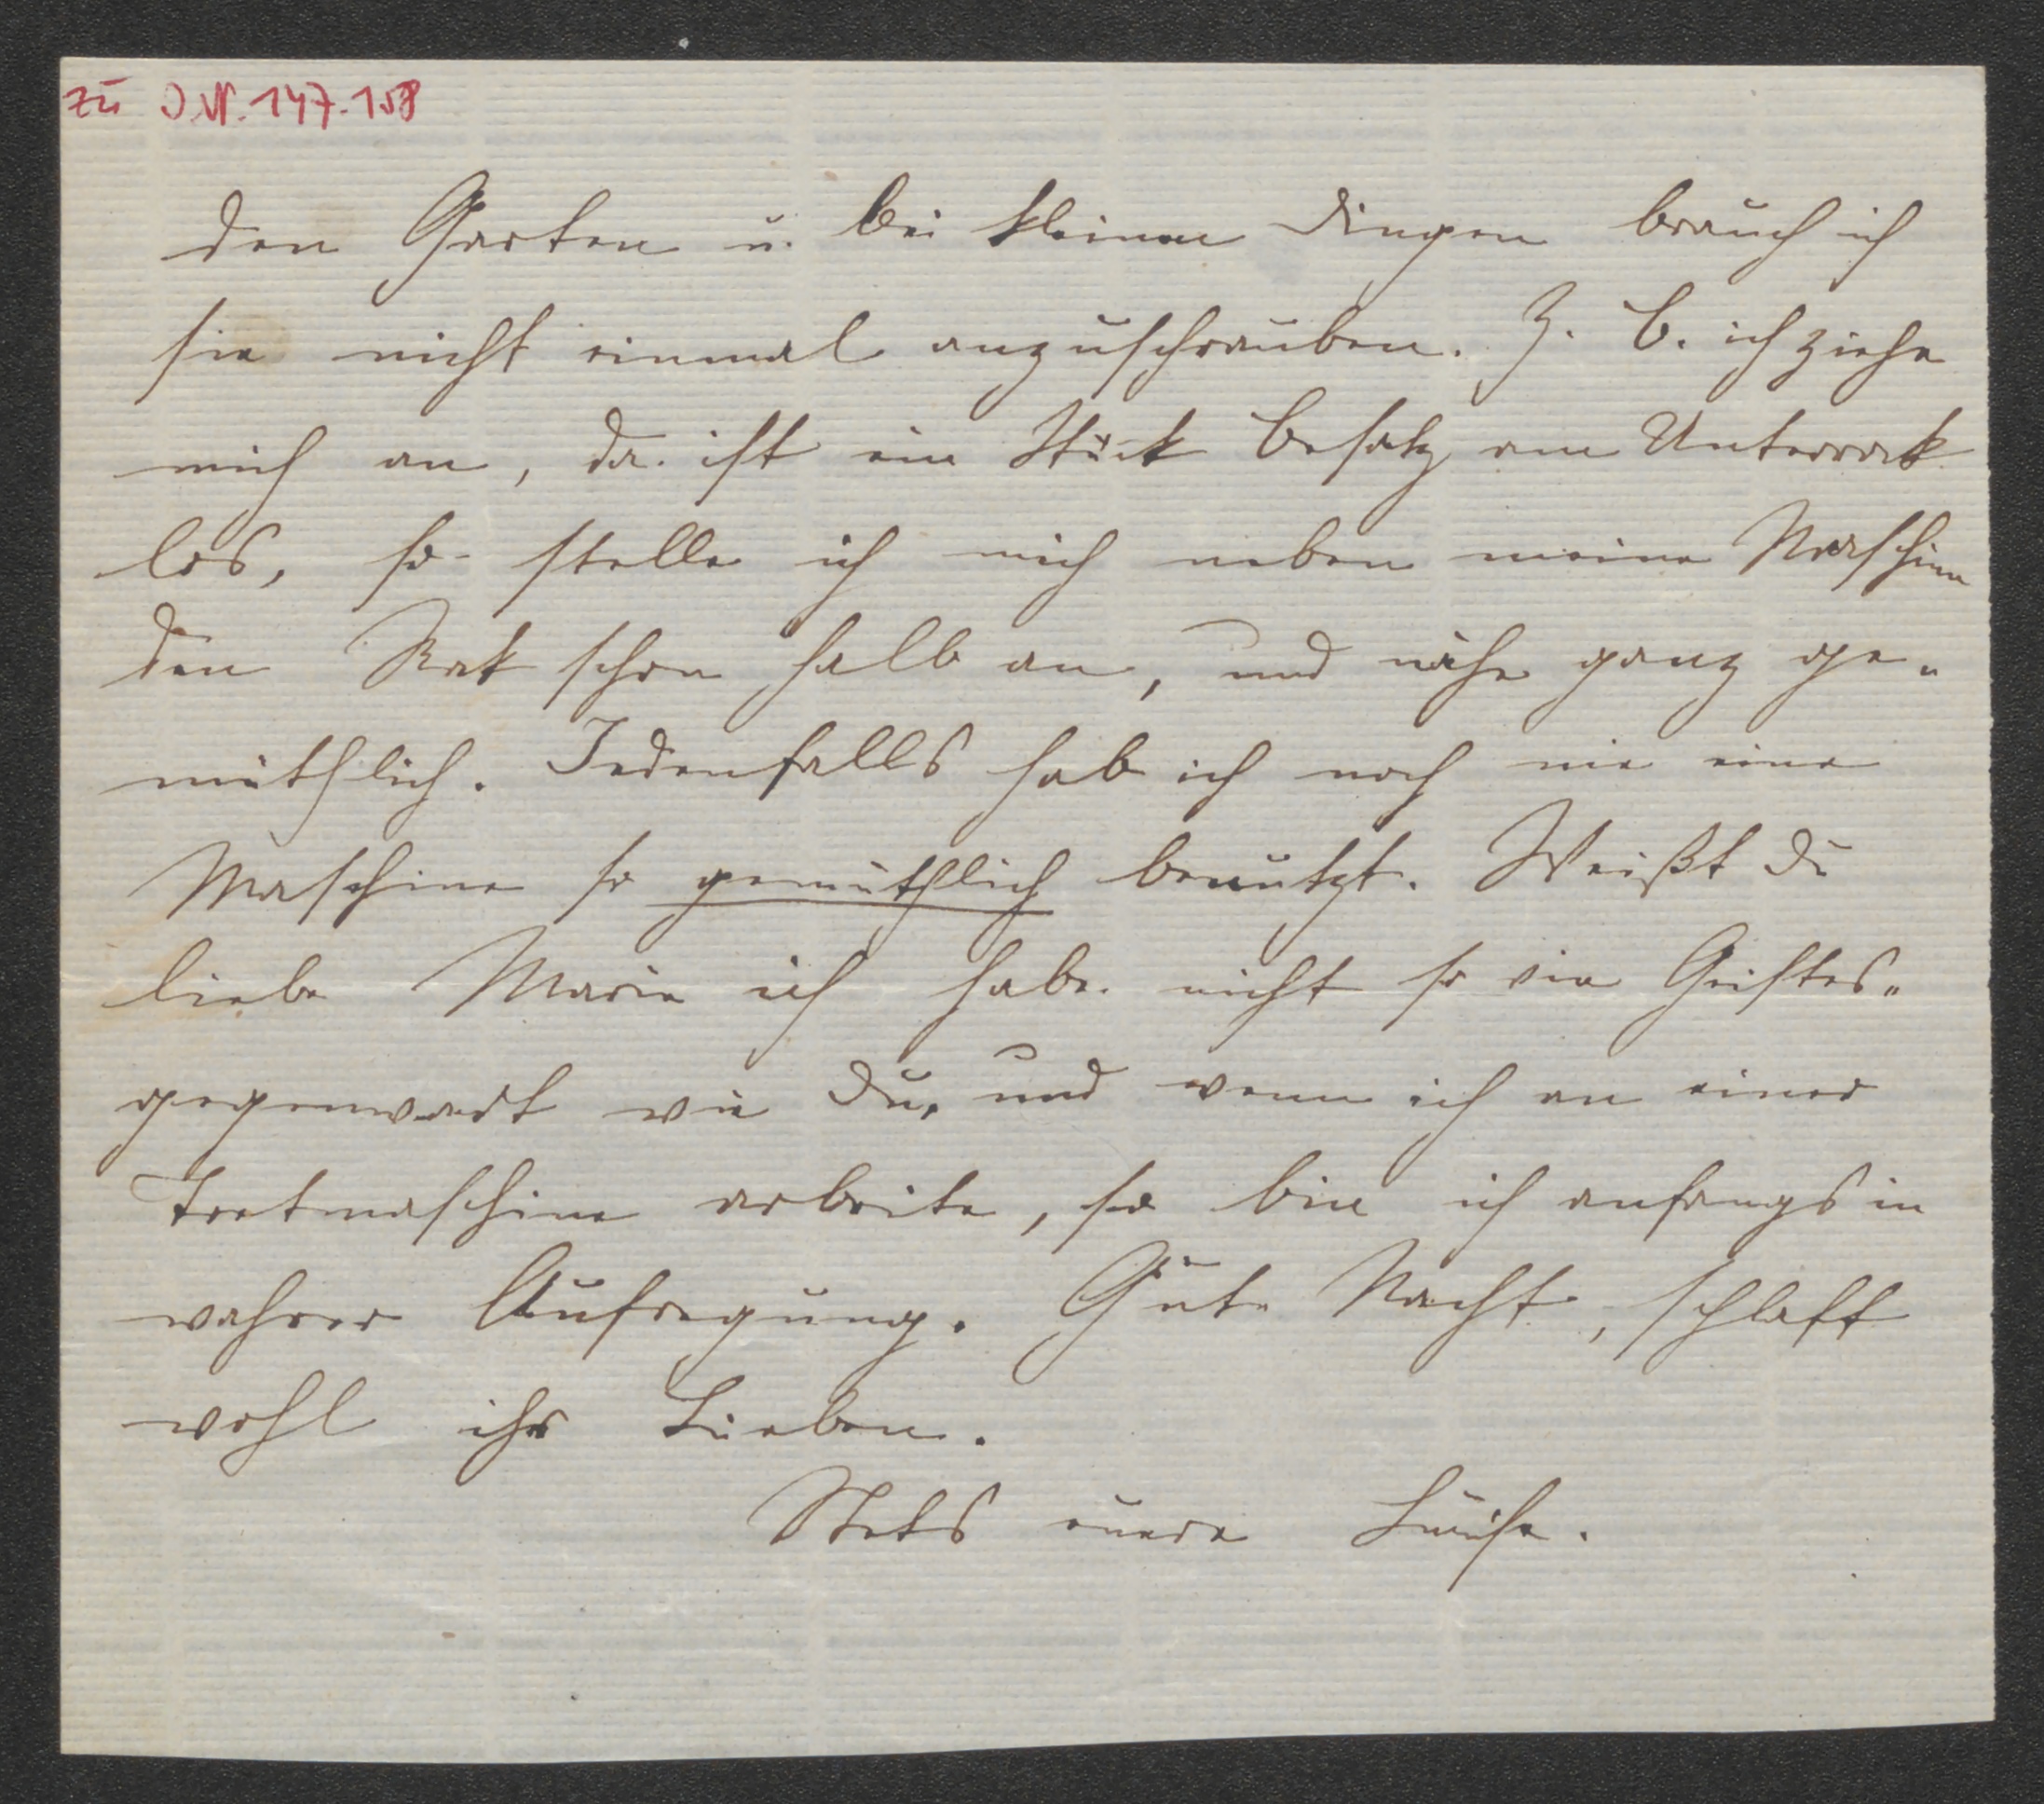 zu I.N. 147.158
den Garten u. bei kleinen Dingen brauch ich
sie nicht einmal anzuschrauben. Z. B. ich ziehe
mich an, da ist ein Stück Besatz am Unterrock
los, so stelle ich mich neben meine Maschine
den Rock schon halb an, und nähe ganz ge-
müthlich. Jedenfalls hab ich noch nie eine
Maschine so gemüthlich benützt. Weißt du
liebe Marie ich habe nicht so viel Geistes-
gegenwart wie Du, und wenn ich an einer
Tretmaschine arbeite, so bin ich anfangs in
wahrer Aufregung. Gute Nacht, schlaft
wohl ihr Lieben.
Stets euere Luise.